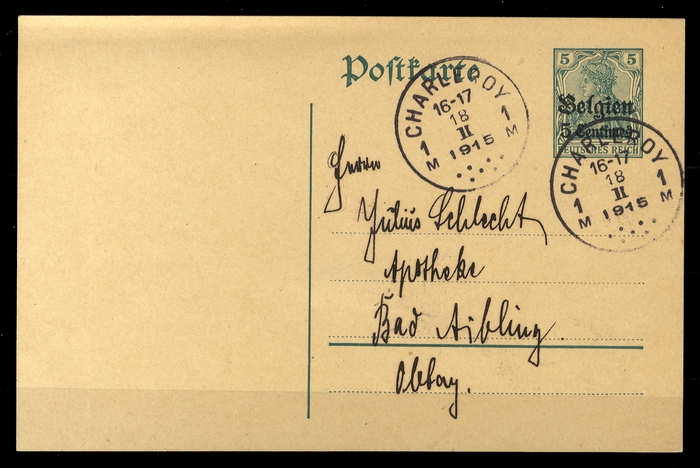 Postkarte
5 5
Belgien
5 Centimes
DEUTSCHES REICH
CHARLEROY
16-17
18
II
1 1
M 1915 M
CHARLEROY
16-17
18
II
1 1
M 1915 M
Herrn
Julius Schlecht,
Apotheke
Bad Aibling.
Obbay.